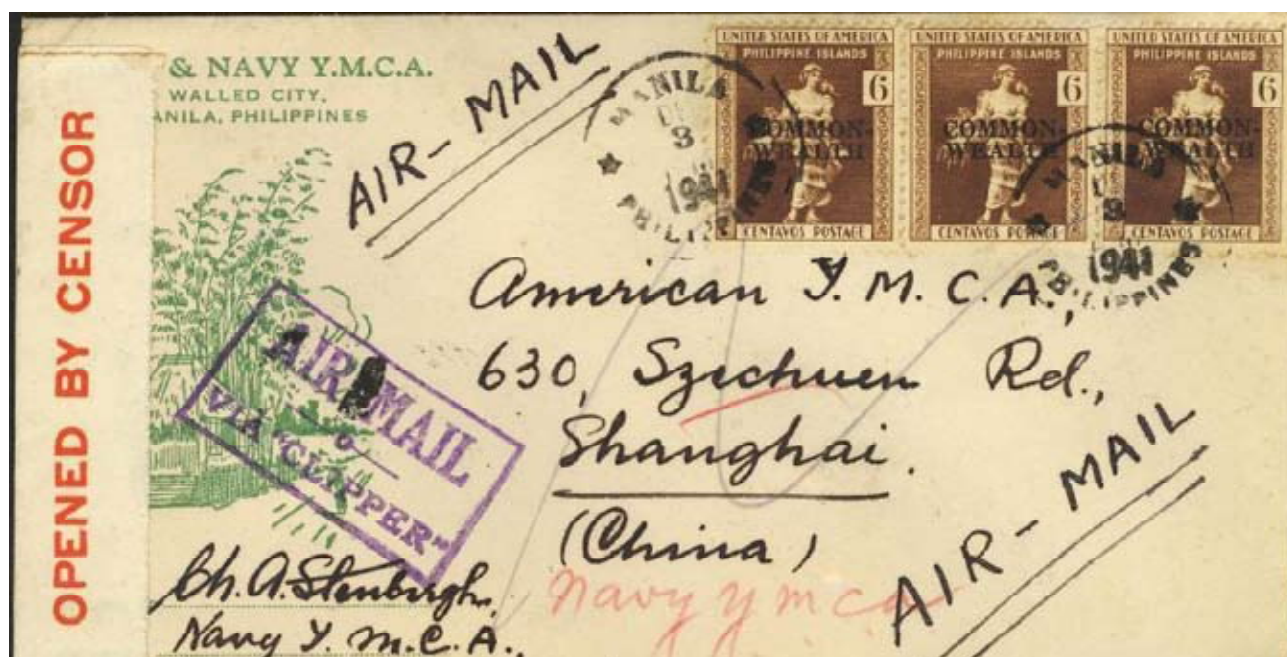 OPENED BY CENSOR
& NAVY Y.M.C.A.
WALLED CITY,
ANILA, PHILIPPINES
AIR-MAIL
MANILA
3
1941
PHILIPPINES
UNITED STATES OF AMERICA
PHILIPPINE ISLANDS
6
COMMON-
WEALTH
CENTAVOS POSTAGE
UNITED STATES OF AMERICA
PHILIPPINE ISLANDS
6
COMMON-
WEALTH
CENTAVOS POSTAGE
UNITED STATES OF AMERICA
PHILIPPINE ISLANDS
6
COMMON-
WEALTH
CENTAVOS POSTAGE
MANILA
3
1941
PHILIPPINES
American Y. M. C. A.,
630, Szechuen Rd.,
Shanghai.
(China)
Navy y m c a
AIR MAIL
VIA "CLIPPER"
AIR-MAIL
Ch. A. Stenbergh,
Navy Y. M. C. A.,